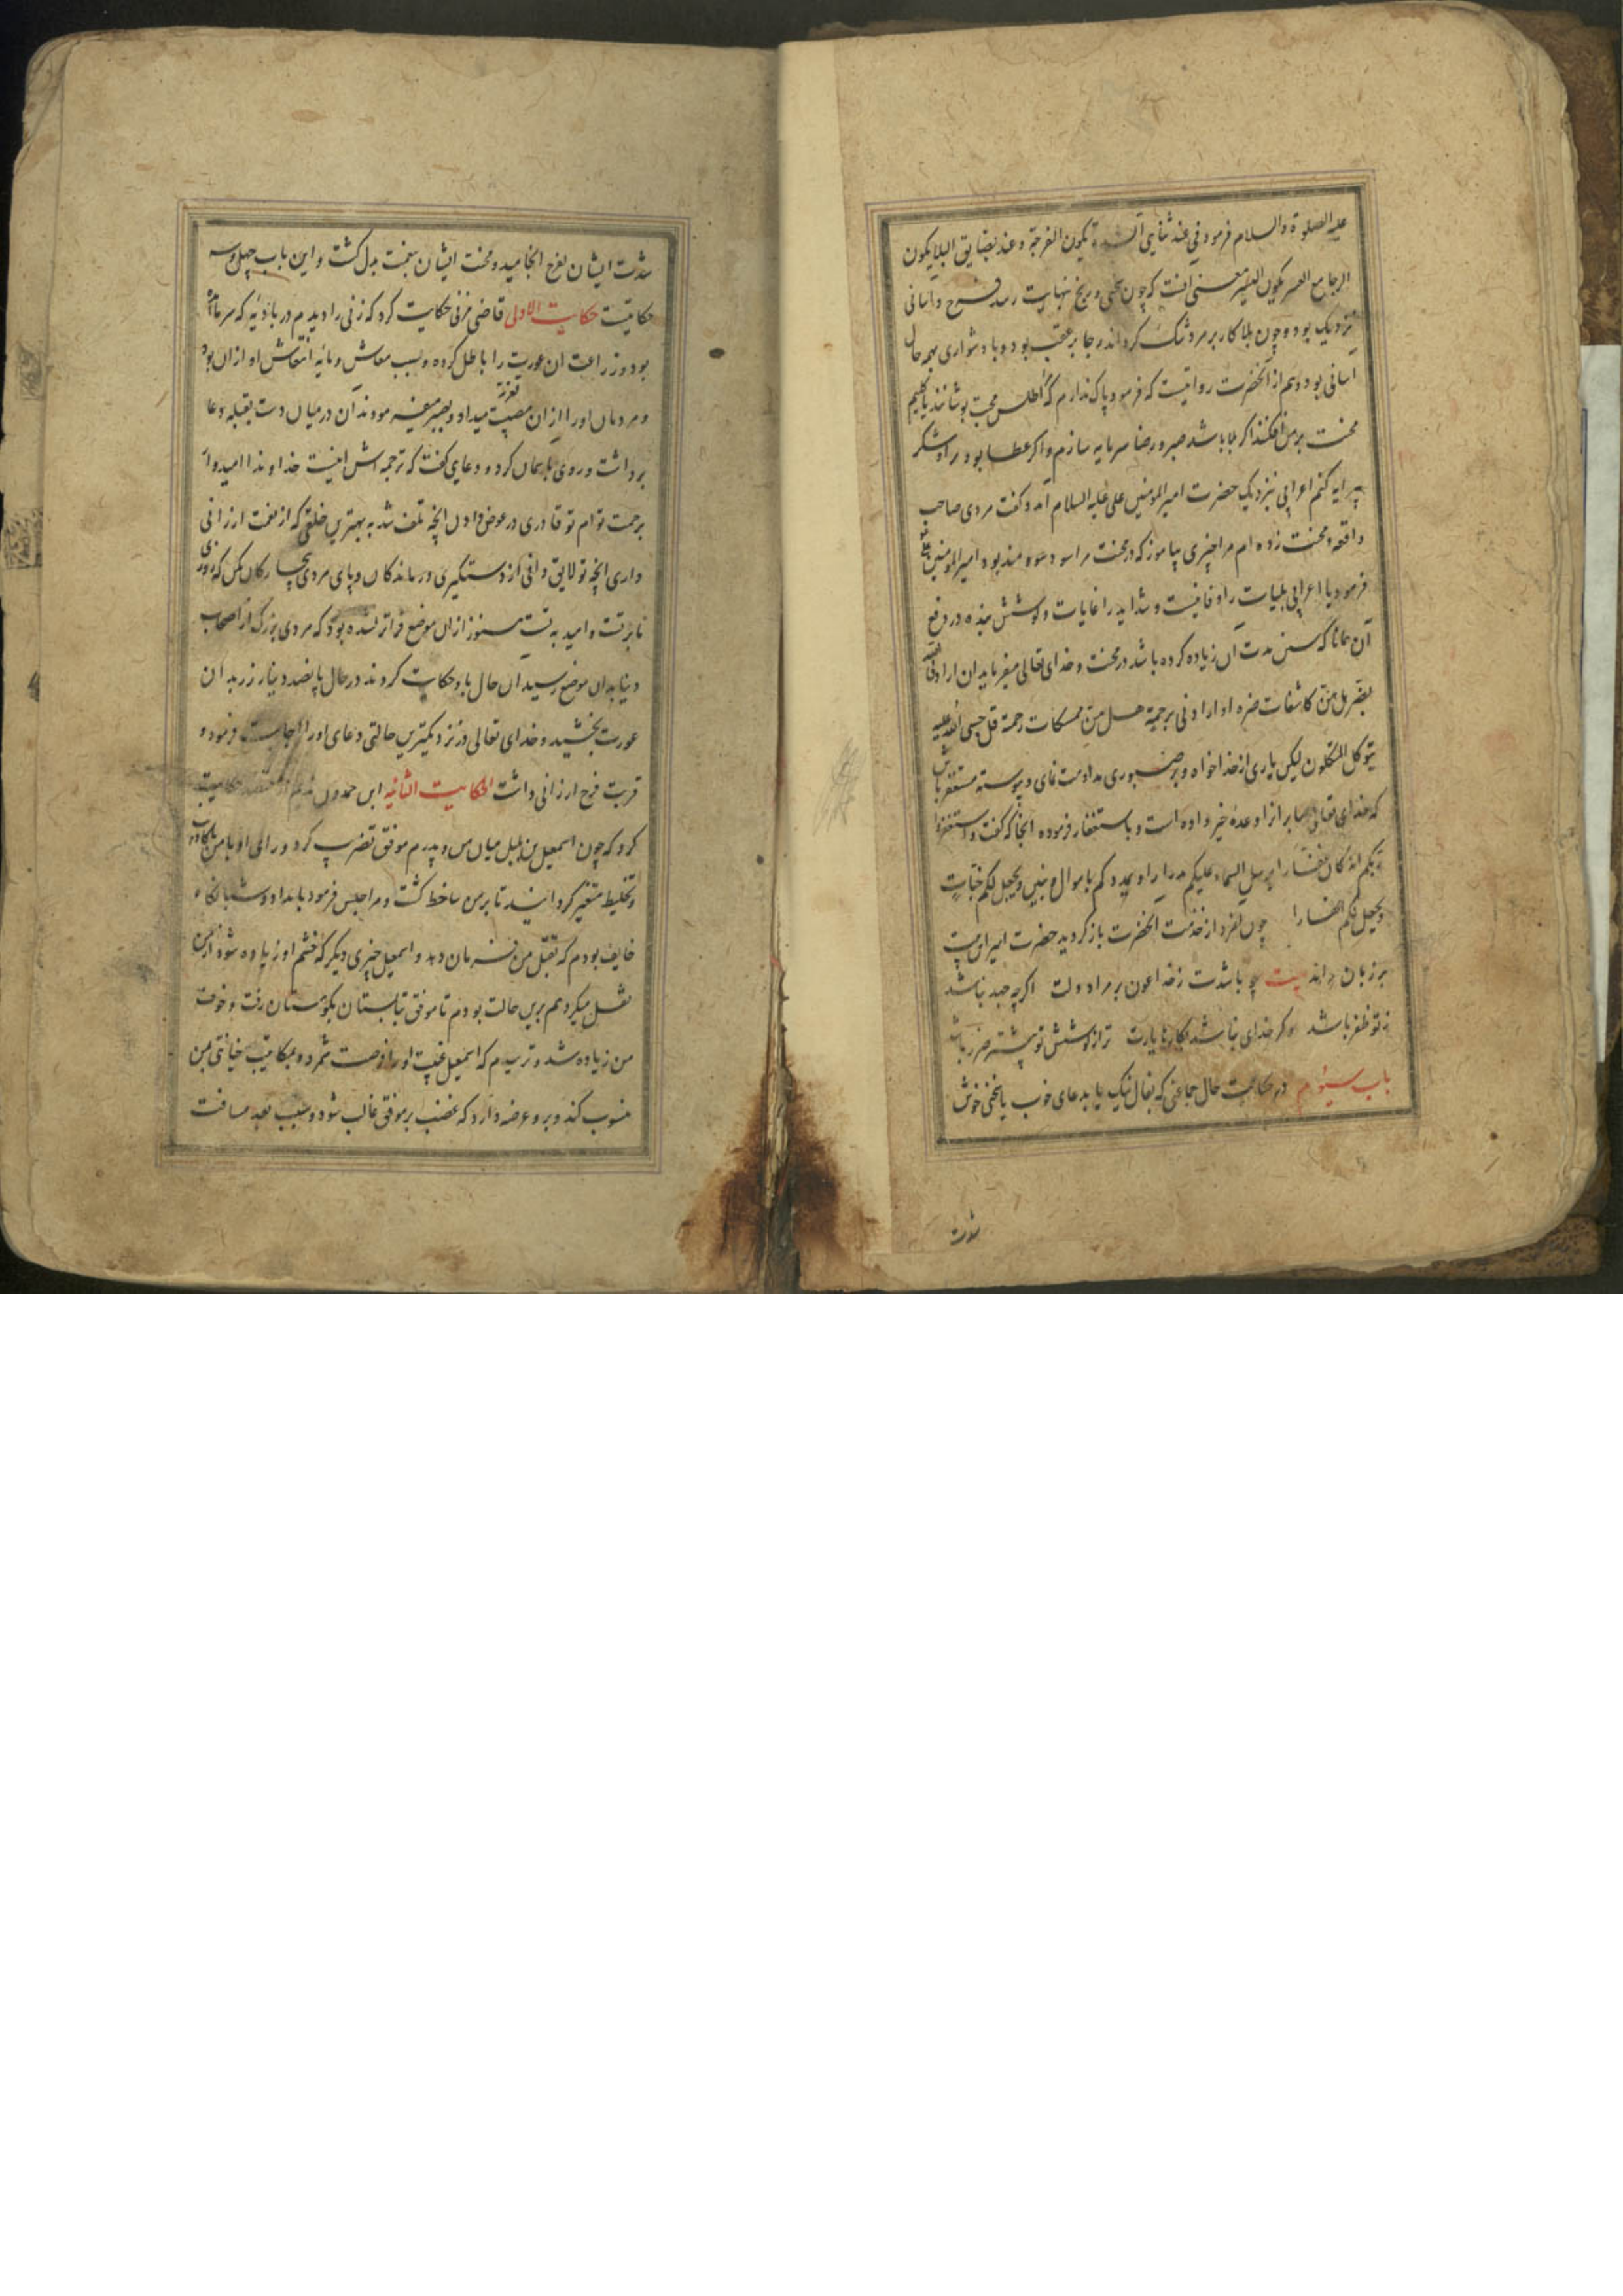 علیه الصلوة والسلام فرمود فی عند تناهی الشدة تکون الفرجة و عند تضایق البلا یکون
الرجا مع العسر یکون الیسر معنی انست که چون سختی و رنج بنهایت رسد فرح و اسانی
نزدیک بود و چون بلا کار بر مرد تنک کرداند رجا بر عقب بود و با دشواری همه حال
اسانی بود و هم از آنحضرت روایتست که فرمود باک ندارم که اطلس محبت پوشانند یا کلیم
محنت بر من افکنند اکر بلا باشد صبر و رضا سرمایه سازم و اکر عطا بود شکر
پیرایه کنم اعرابی بنزدیک حضرت امیرالمومنین علی علیه السلام آمد و کفت مردی صاحب
واقعه و محنت زده ام مرا چیزی بیاموز که در محنت مرا سودمند بود امیرالمومنین
فرمود یا اعرابی بلیات را اوقاتیست و شداید را غایات و کوشش بنده در دفع
آن همانا که سبب مدت آن زیاده کرده باشد در محنت و خدای تعالی میفرماید ان ارادنی الله
بضر هل هن کاشفات ضره او ارادنی برحمة هل من ممسکات رحمة قل حسبی الله علیه
یتوکل المتکلون لیکن یاری از خدا خواه و بر صبوری مداومت نمای و پیوسته مستغفر باش
که خدای تعالی صابر انرا وعدهٔ خیر داده است و باستغفار فرموده انجا که کفت واستغفروا
ربکم انه کان غفارا یرسل السماء علیکم مدرارا و یمددکم باموال و بنین و یجعل لکم جنات
و یجعل لکم انهارا چون مرد از خدمت انحضرت باز کردید حضرت امیر این بیت
بر زبان راند بیت چو باشدت زخدا عون بر مراد ولت اکرچه جهد نباشد
زتو ظفر باشد و کر خدای نباشد بکارها یارت ترا از کوشش تو بیشتر ضرر باشد
باب سیوم در حکایت حال جماعتی که بفال نیک یا بدعای خوب یا سخنی خوش
شدت
شدت ایشان بفرح انجامید و محنت ایشان بنعمت بدل کشت و این باب چهل و سه
حکایتست حکایت الاولی قاضی مزنی حکایت کرد که زنی را دیدم در بادیه که سرما آمده
بود و زراعت ان عورت را باطل کرده و سبب معاش و مایه انتعاش او ازان بود
و مردمان اورا ازان مصیبت تعزیت میدادند و بصبر میفرمودند آن در میان دست بقبله دعا
برداشت و روی باسمان کرد و دعای کفت که ترجمه اش اینست خداوندا امیدوار
برحمت توام تو قادری در عوض دادن انچه تلف شد به بهترین خلقی که از نعمت ارزانی
داری انچه تو لایق دانی از دستگیری درماندکان و پای مردی بیچارکان بکن که روزی
ما بر تست و امید به تست هنوز ازان موضع فراتر نشده بود که مردی بزرک از اصحاب
دنیا بدان موضع رسید ان حال باو حکایت کردند در حال پانصد دینار زر بدان
عورت بخشید و خدای تعالی در نزدیکترین حالتی دعای اورا اجابت فرمود و
قربت فرح ارزانی داشت الحکایت الثانیه ابن حمدون ندیم حکایت
کرد که چون اسمعیل بن بلبل میان من و پدرم موفق تضریب کرد و رای او با من
و تخلیط متغیر کردانید تا بر من ساخط کشت و مرا حبس فرمود بامداد و شبانکاه
خایف بودم که بقتل من فرمان دهد و اسمعیل چیزی دیکر که خشم او زیاده شود از من
نقل میکرد هم برین حالت بودم تا موفق بتابستان بکوهستان رفت و خوف
من زیاده شد و ترسیدم که اسمعیل غیبت اورا فرصت شمرد و بمکاتبت خیانتی بمن
منسوب کند و برو عرضه دارد که غضب بر موفق غالب شود و بسبب بعد مسافت